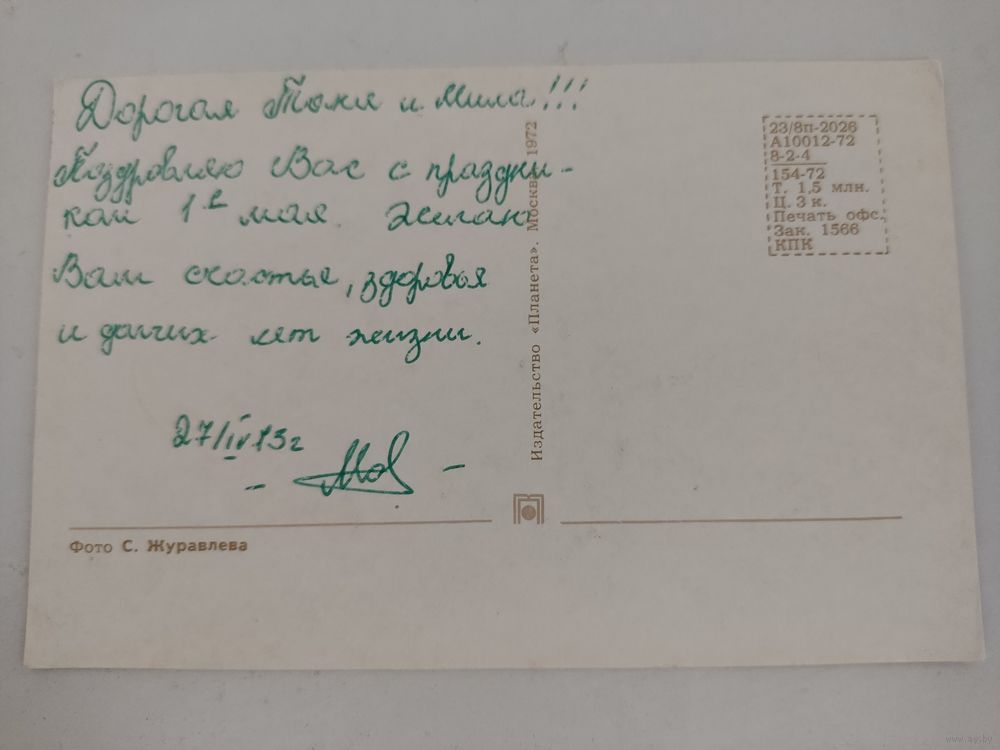 Дорогая Таня и Мила!!!
Поздравляю Вас с праздни-
ком 1е мая. Желаю
Вам счастье, здоровья
и долгих лет жизни.
27/IV 73г
Издательство «Планета». Москва 1972
23/8п-2026
А10012-72
8-2-4
154-72
Т. 1,5 млн.
Ц. 3 к.
Печать офс.
Зак. 1566
КПК
Фото С. Журавлева
www.ay.by